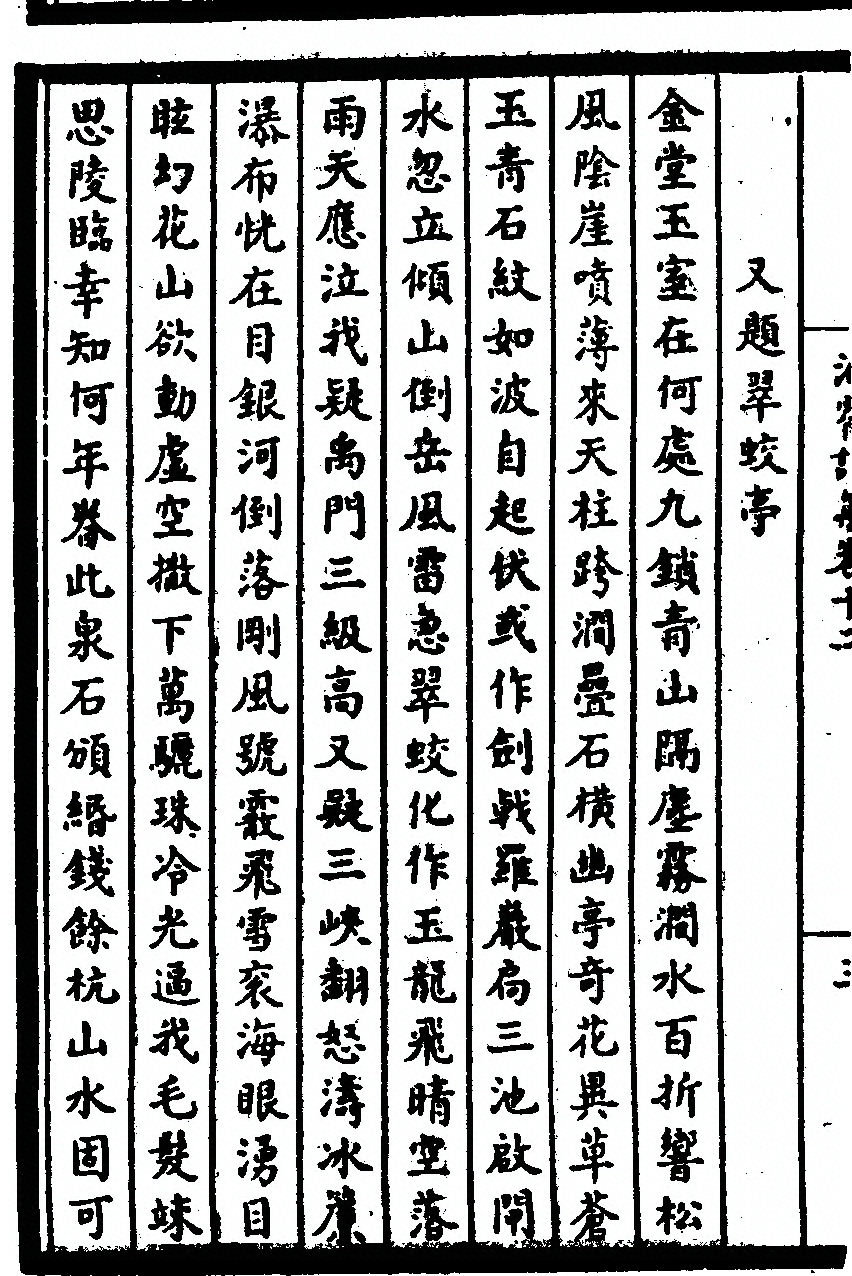 又題翠蛟亭
金堂玉室在何處九鎖青山隔塵霧澗水百折響松
風陰崖噴薄來天柱跨澗疊石橫幽亭奇花異草蒼
玉青石紋如波自起伏或作劍戟羅巖扃三池啟閘
水忽立傾山倒岳風雷急翠蛟化作玉龍飛晴空落
雨天應泣我疑禹門三級高又疑三峽翻怒濤冰簾
瀑布恍在目銀河倒落剛風號霰飛雪衮海眼湧目
眩幻花山欲動虛空撒下萬驪珠冷光逼我毛髮竦
思陵臨幸知何年眷此泉石頒緡錢餘杭山水固可